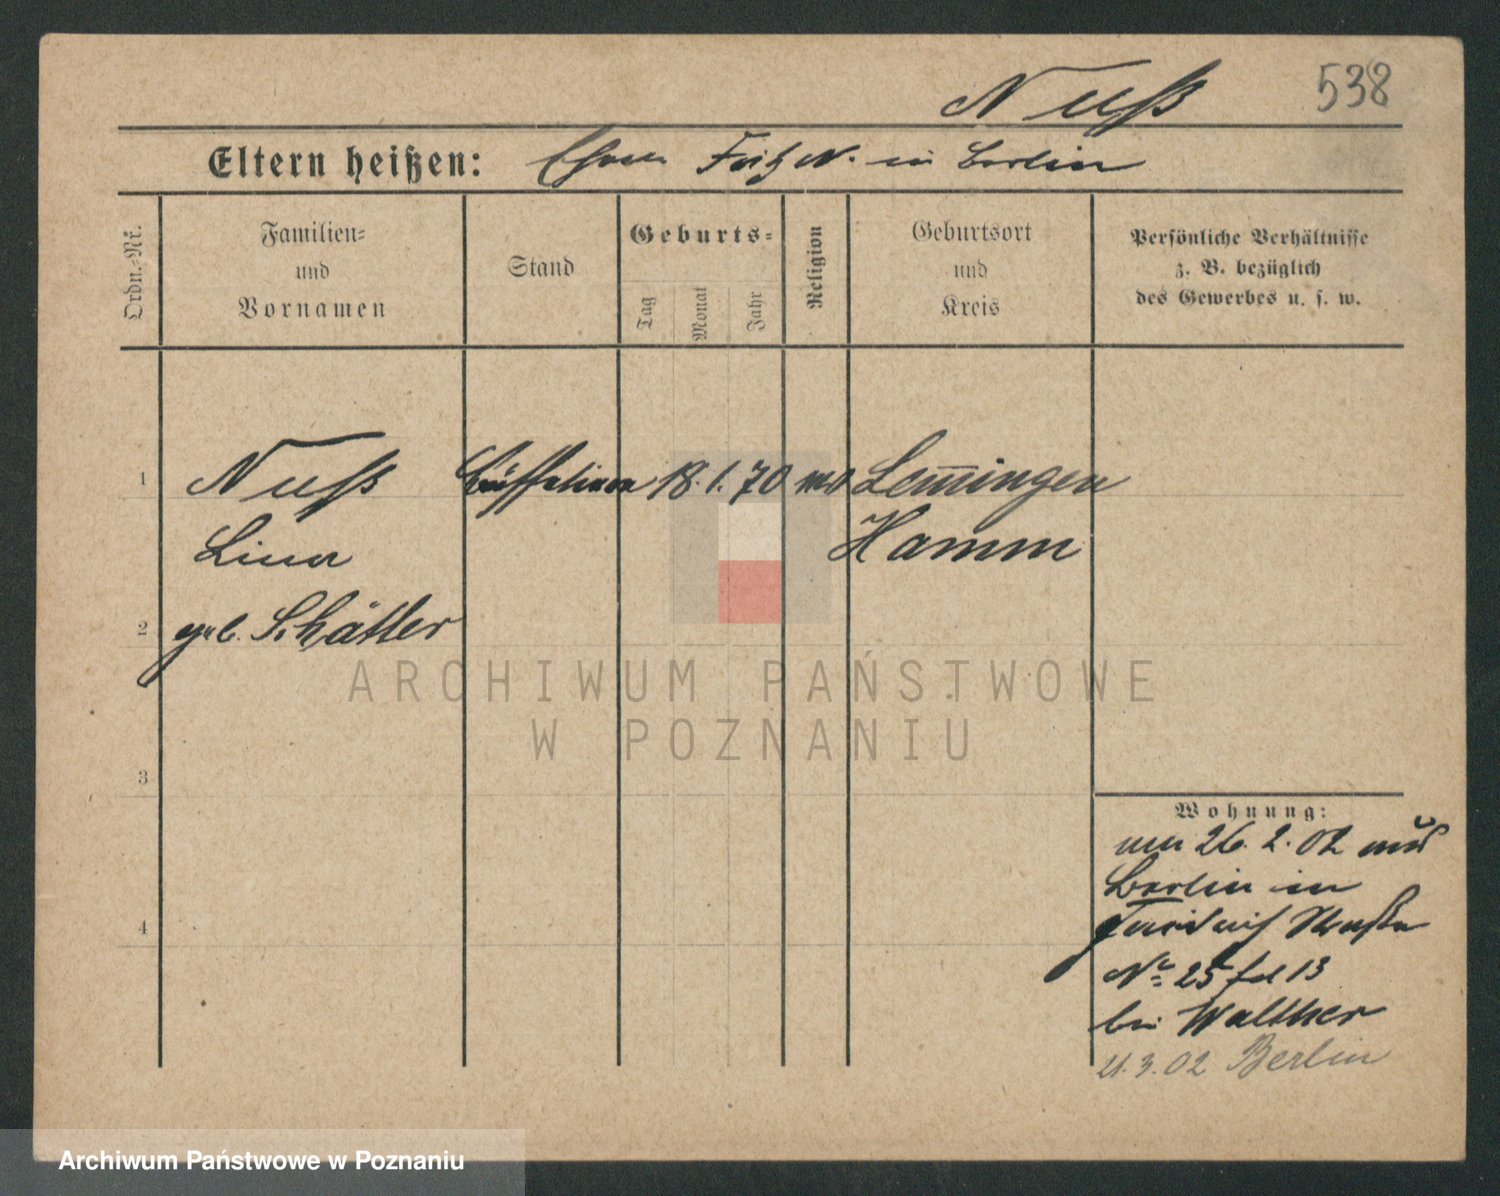 Nuß 538
Eltern heißen: Ehem. Fritz N. in Berlin
Ordn.-Nr.
Familien-
und
Vornamen
Stand
Geburts-
Tag
Monat
Jahr
Religion
Geburtsort
und
Kreis
Persönliche Verhältnisse
z. B. bezüglich
des Gewerbes u. s. w.
1 Nuß 18. 1. 70
Lina Hamm
2 geb. Schäller
3
4
ARCHIWUM PAŃSTWOWE
W POZNANIU
Wohnung:
26. 2. 02 aus
Berlin in
No 25
bei Walther
3. 02 Berlin
Archiwum Państwowe w Poznaniu